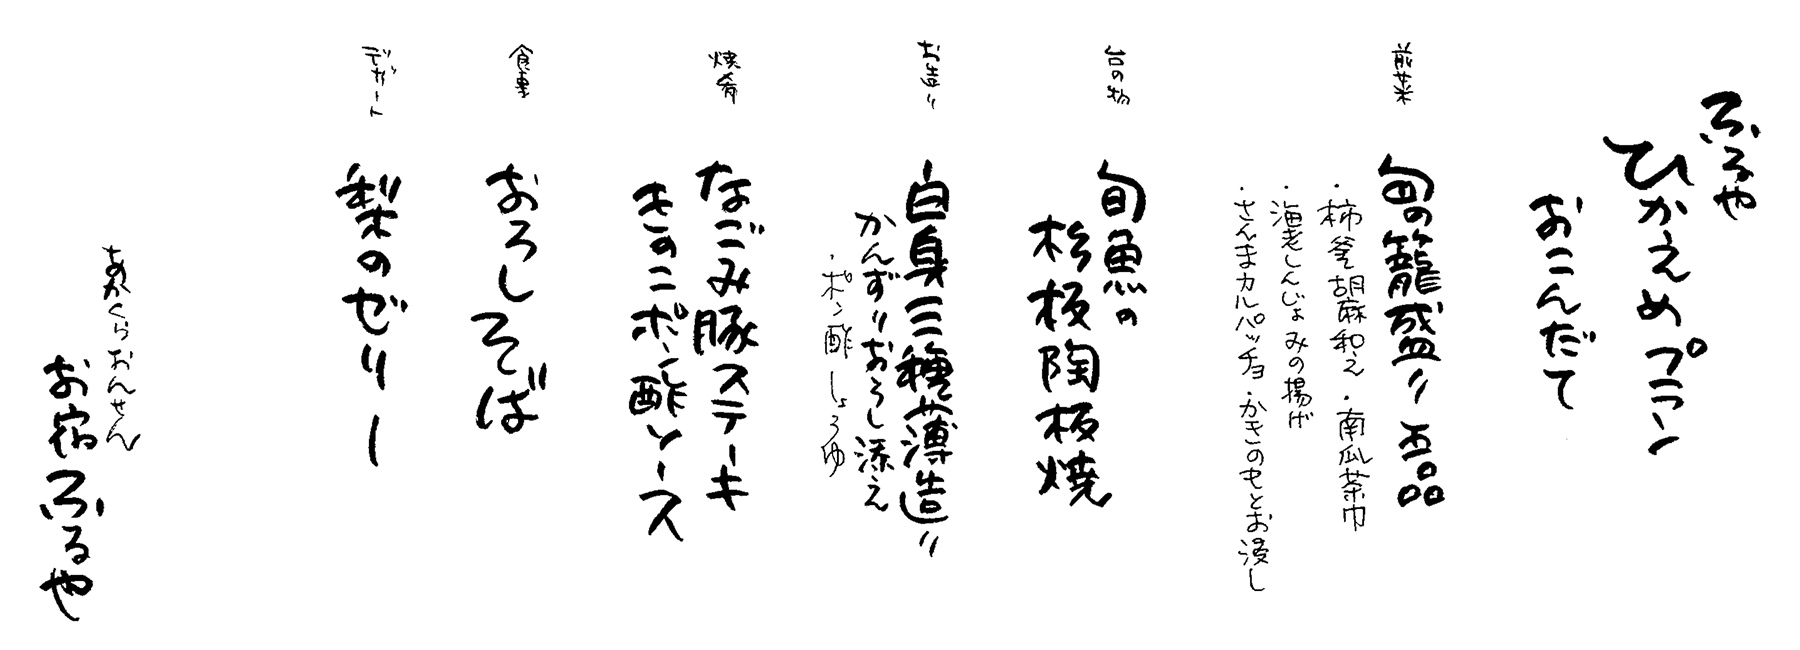 ふるや
ひかえめプラン
おこんだて
前菜
旬の籠盛り 五品
・柿釜胡麻和え ・南瓜茶巾
・海老しんじょみの揚げ
・さんまカルパッチョ ・かきのもとお浸し
台の物
旬魚の
杉板陶板焼
お造り
白身三種薄造り
かんずりおろし添え
・ポン酢しょうゆ
焼肴
なごみ豚ステーキ
きのこポン酢ソース
食事
おろしそば
デザート
梨のゼリー
あかくらおんせん
お宿ふるや